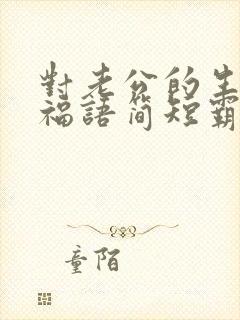 對老公的生
福語簡短霸
童陌